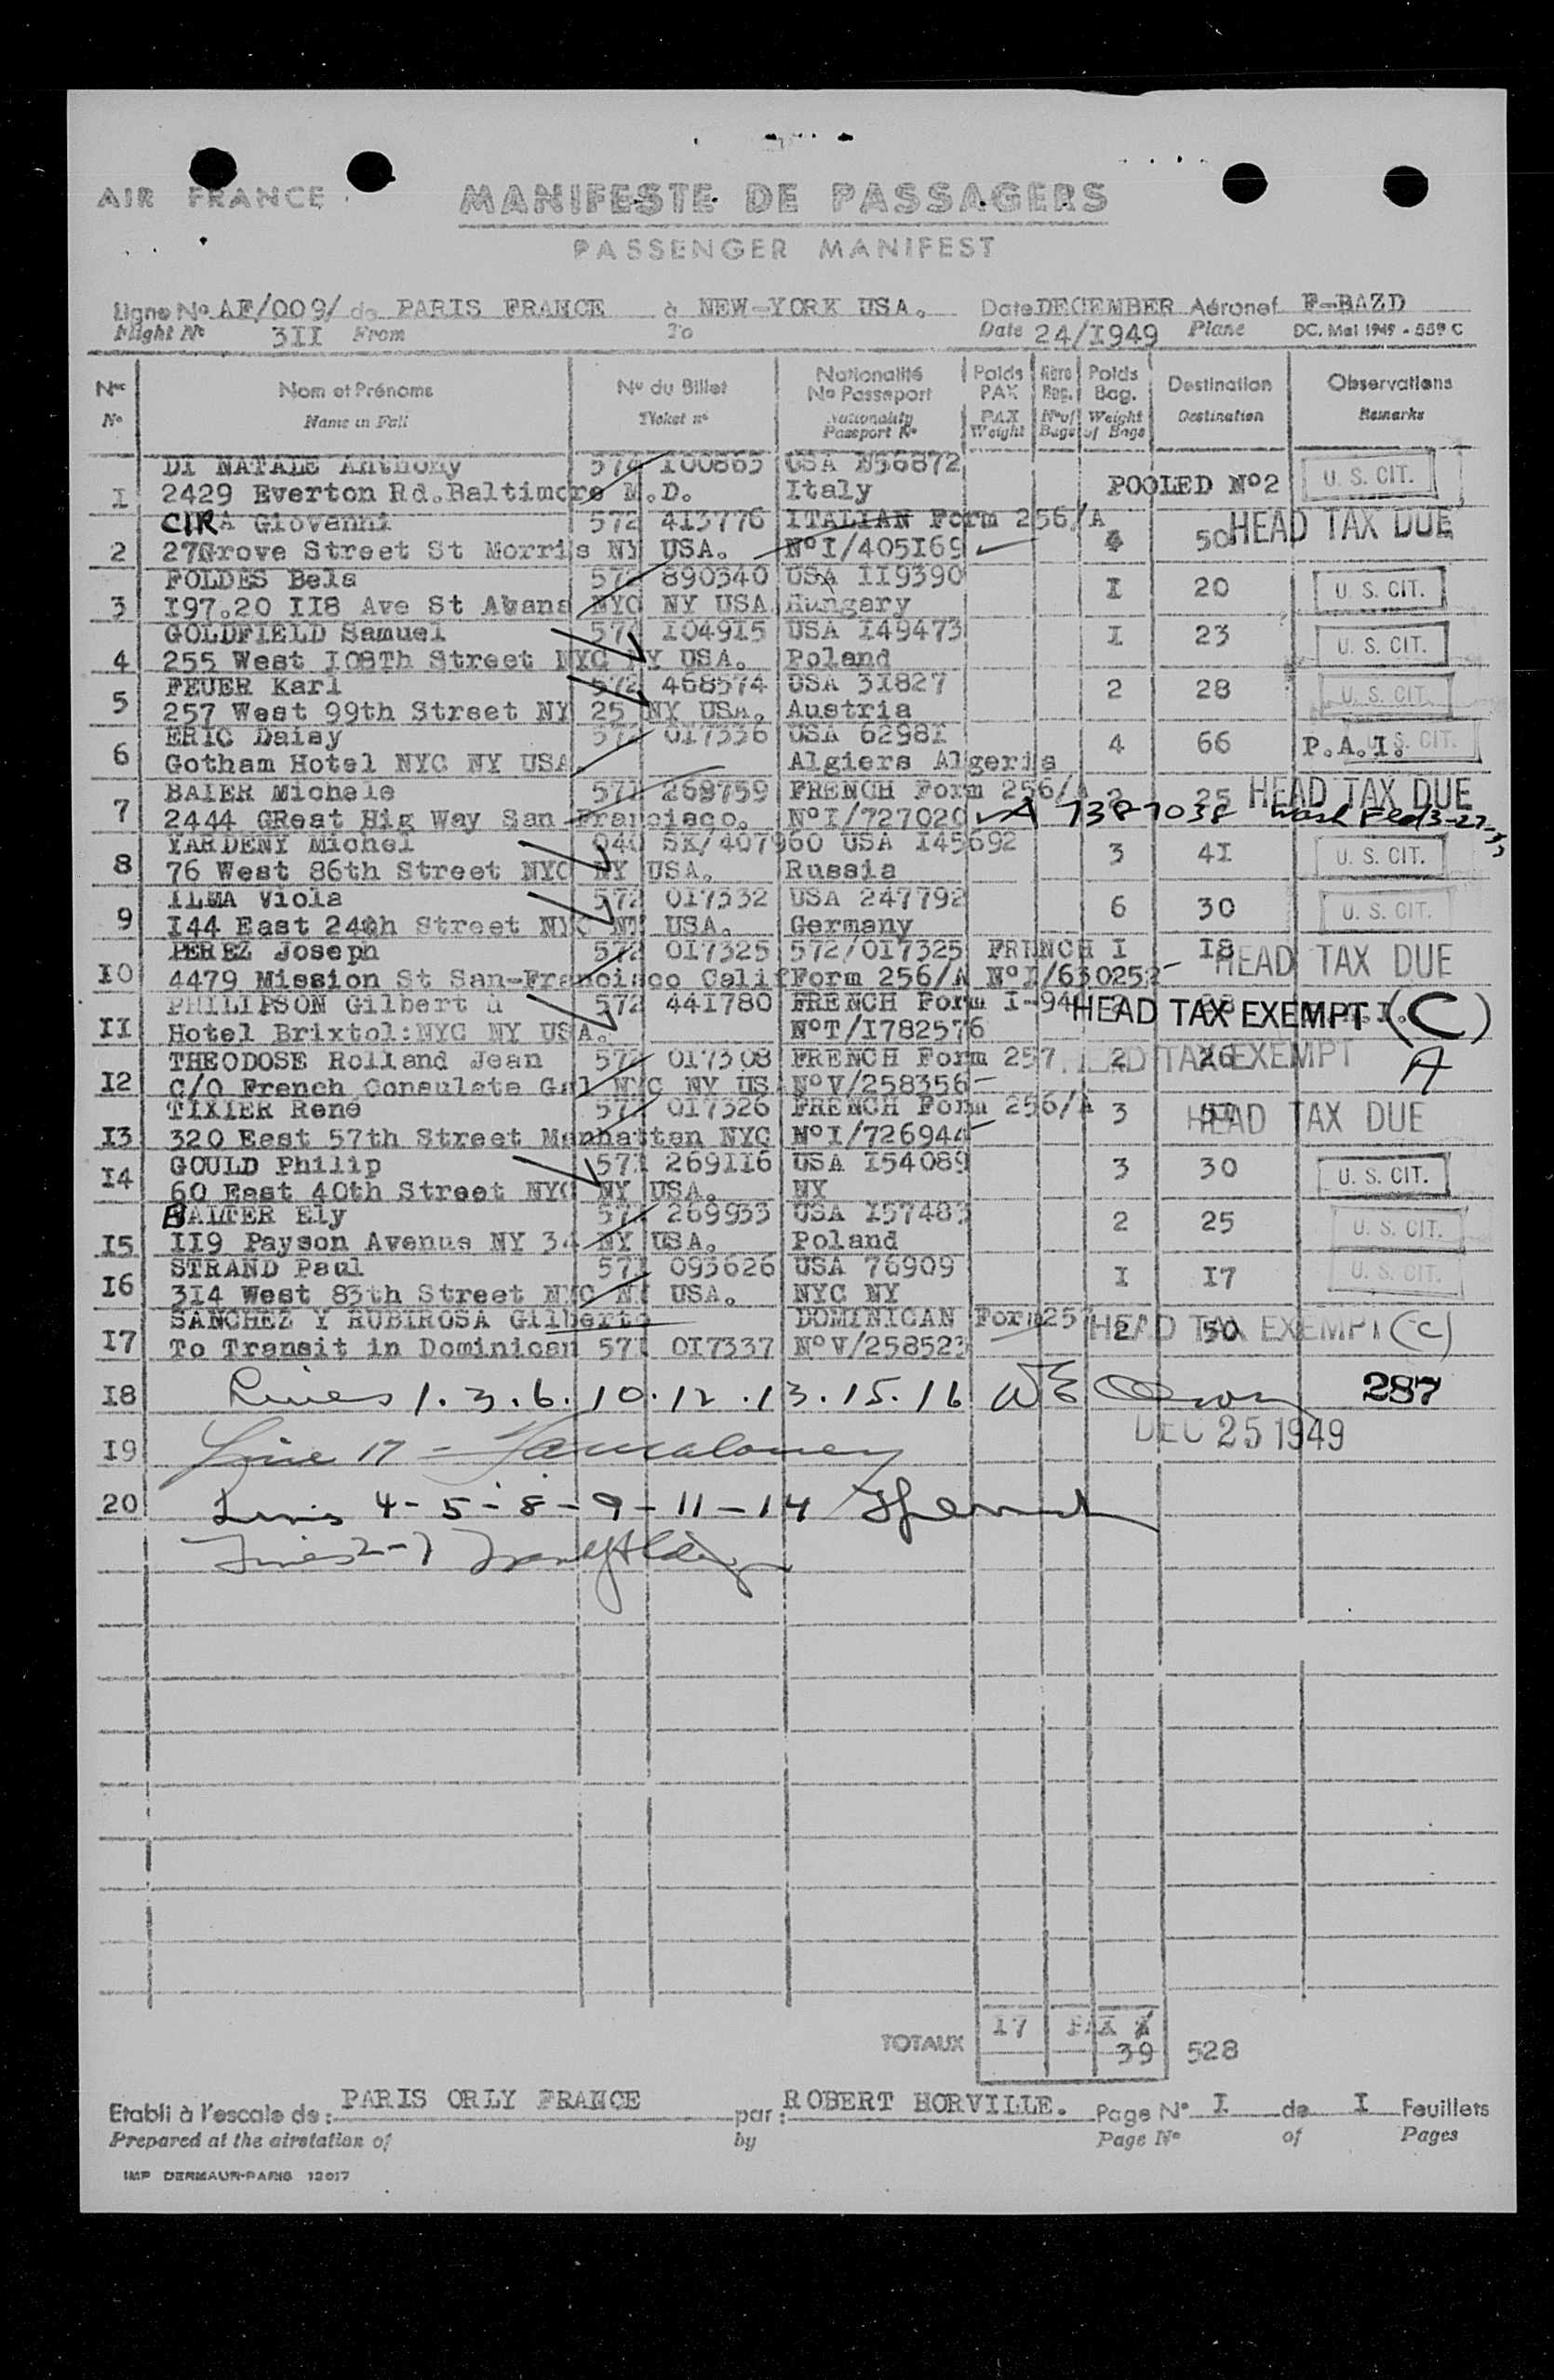 AIR FRANCE
MANIFESTE DE PASSAGERS
PASSENGER MANIFEST
Ligne No AF/009/ de PARIS FRANCE à NEW-YORK USA. Date DECEMBER Aéronef F-BAZD
Flight No 3II From To Date 24/I949 Plane DC. Mai 1949 - 559 C
Nos Nom et Prénoms No du Billet Nationalité No Passeport Poids PAX Nbre Bag. Poids Bag. Destination Observations
No Name in Full Ticket no Nationality Passport No PAX Weight No of Bags Weight of Bags Destination Remarks
DI NATALE Anthony 574 I00865 USA N56872
I 2429 Everton Rd.Baltimore M.D. Italy POOLED No2 U. S. CIT.
CIRA Giovanni 572 4I3776 ITALIAN Form 256/A
2 27Grove Street St Morris NY USA. NoI/405I69 50 HEAD TAX DUE
FOLDES Bela 572 890340 USA II9390
3 I97.20 II8 Ave St Abans NYC NY USA Hungary I 20 U. S. CIT.
GOLDFIELD Samuel 574 I049I5 USA I49473
4 255 West I08Th Street NYC NY USA. Poland I 23 U. S. CIT.
FEUER Karl 572 468574 USA 3I827
5 257 West 99th Street NY 25 NY USA. Austria 2 28 U. S. CIT.
ERIC Daisy 572 0I7336 USA 6298I
6 Gotham Hotel NYC NY USA. Algiers Algeria 4 66 P.A.I. U. S. CIT.
BAIER Michele 571 269759 FRENCH Form 256/A 2 25 HEAD TAX DUE
7 2444 GReat Hig Way San Francisco. NoI/727020 A 7387038
YARDENY Michel 040 SK/407960 USA I45692
8 76 West 86th Street NYC NY USA. Russia 3 4I U. S. CIT.
ILMA Viola 572 0I7332 USA 247792
9 I44 East 24th Street NYC NY USA. Germany 6 30 U. S. CIT.
PEREZ Joseph 572 0I7325 572/0I7325 FRENCH I I8
I0 4479 Mission St San-Francisco Calif Form 256/A NoI/630252 HEAD TAX DUE
PHILIPSON Gilbert 572 44I780 FRENCH Form I-94 HEAD TAX EXEMPT (C)
II Hotel Brixtol:NYC NY USA. NoT/I782576
THEODOSE Rolland Jean 572 0I7308 FRENCH Form 257 2 26 HEAD TAX EXEMPT A
I2 C/O French Consulate Gal NYC NY USA NoV/258356
TIXIER René 572 0I7326 FRENCH Form 256/A
I3 320 East 57th Street Manhattan NYC NoI/726944 3 HEAD TAX DUE
GOULD Philip 571 269II6 USA I54089
I4 60 East 40th Street NYC NY USA. NY 3 30 U. S. CIT.
BALTER Ely 571 269933 USA I57483
I5 II9 Payson Avenue NY 34 NY USA. Poland 2 25 U. S. CIT.
STRAND Paul 571 093626 USA 76909
I6 3I4 West 83th Street NYC NY USA. NYC NY I I7 U. S. CIT.
SANCHEZ Y RUBIROSA Gilberto DOMINICAN Form257
I7 To Transit in Dominican 571 0I7337 NoV/258523 2 50 HEAD TAX EXEMPT (C)
I8 Lines 1. 3. 6. 10. 12. 13. 15. 16 287
DEC 25 1949
I9 Line 17 -
20 Lines 4 - 5 - 8 - 9 - 11 - 14
Lines 2-7
TOTAUX I7 PAX
39 528
Etabli à l'escale de: PARIS ORLY FRANCE par: ROBERT HORVILLE. Page No I de I Feuillets
Prepared at the airstation of by Page No of Pages
IMP DERMAUR-PARIS 12017